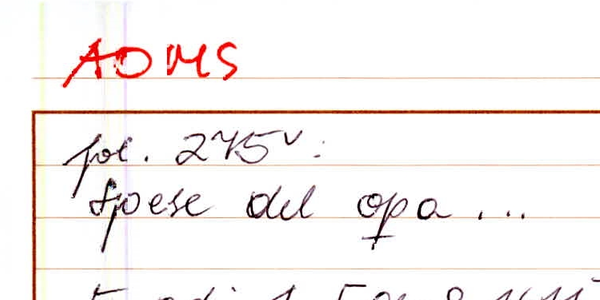 AOMS
fol. 275v:
Spese del opa ...